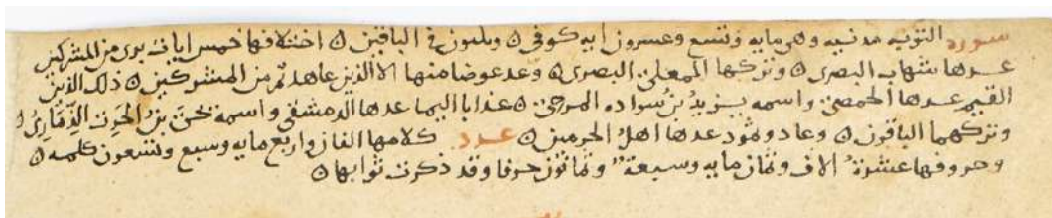 سورة التوبه مدنيه وهى مايه وتسع وعشرون ايه كوفى ۞ وثلثون فى الباقين ۞ اختلافها خمس ايات برى من المشركين
عدها شهاب البصرى ۞ وتركها المعلى البصرى ۞ وعد عوضا منها الا الذين عاهدتم من المشركين ۞ ذلك الدين
القيم عدها الحمصى واسمه يزيد بن سواده المرحى ۞ عذابا اليما عدها الدمشقى واسمه يحيى بن الحرث الذمارى
وتركهما الباقون ۞ وعاد وثمود عدها اهل الحرمين ۞ عدد كلامها الفان واربع مايه وسبع وتسعون كلمه ۞
وحروفها عشرة الاف وثمان مايه وسبعة وثمانون حرفا وقد ذكرت ثوابها ۞